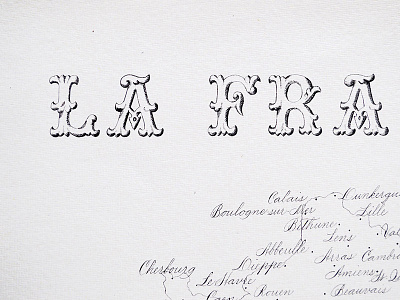 LA FRA
Calais Dunkerqu
Boulogne-sur-Mer Lille
Béthune
Lens Val
Abbeville
Arras Cambr
Cherbourg Dieppe
Le Havre Amiens St-Q
Caen Rouen Beauvais